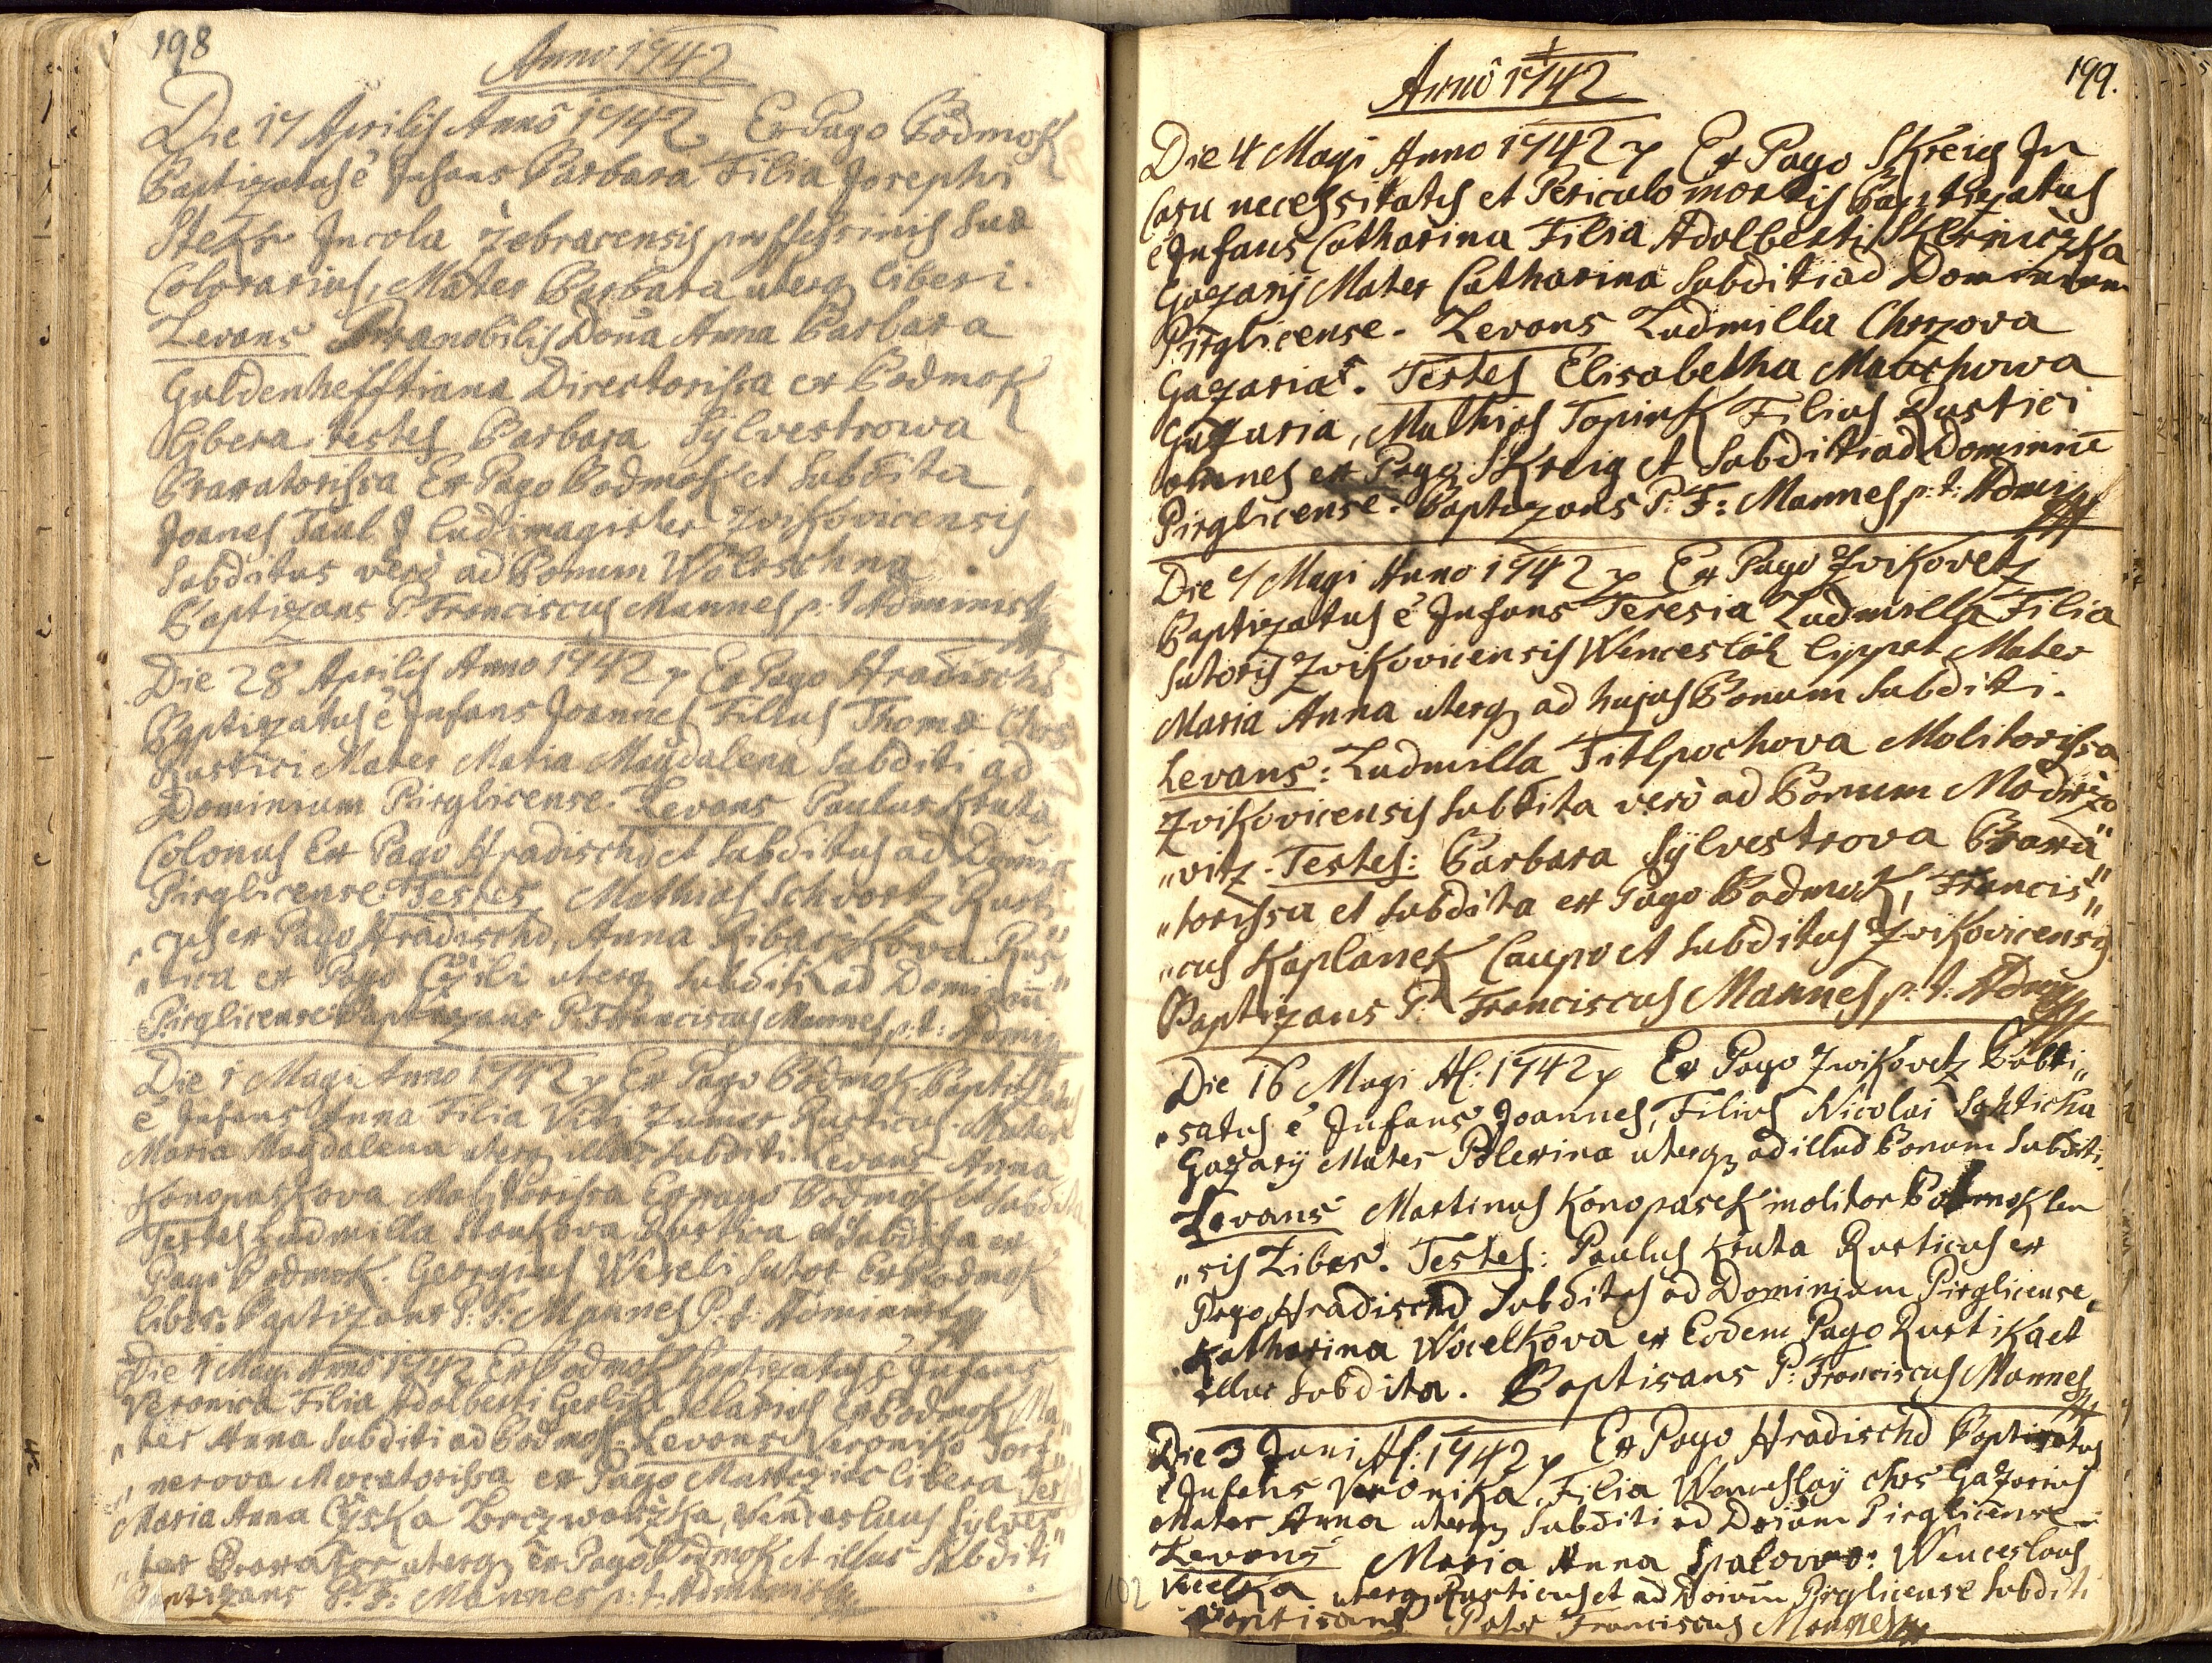 198
Anno 1742
Die 17 Aprilis Anno 1742 Ex Pago Podmok
Baptizatus ē Infans Barbara Filia Josephi
Incola Zebracensis professionis suæ
Colorarius, Mater Barbara uterq liberi.
Levans Prænobilis Dōna Anna Barbara
Guldenhefftiana Directorissa ex Podmok
libera. testes Barbara Sylvestrowa
Braxatorissa Ex Pago Podmok et subdita
Joanes Taul ludimagister Zvikovicensis
subditus vero ad Bonum Woleschna
Baptizans P. Franciscus Mannes p. t. Administ
Die 28 Aprilis Anno 1742 Ex Pago Hradischt
Baptizatus ē Infans Joannes Filius Thomæ Chos
Rustici Mater Maria Magdalena subditi ad
Dominium Pirglicense. Levans Paulus Kruta
Colonus Ex Pago Hradischd et subditus ad
Pirglicense. Testes Mathias Schvortz Rusti
„cus ex Pago Hradischd, Anna Ribarzikova Rus„
„tica ex Pago uterq subditi ad Dominiū
Pirglicense Baptizans P. Franciscus Mannes p. t: Admin
Die 1 Magi Anno 1742 Ex Pago Podmok Baptizatus
ē Infans Anna Filia Viti Zumer Rusticus. Mater
Maria Magdalena uterq illuc subditi. Levans Anna
Konopaskova Molitorissa Ex pago Podmok et subdita
Testes Ludmilla Stoukova Rustica et subdita ex
Pago Podmok. Georgius Weseli sutor Ex Podmok
liber. Baptizans P. F. Mannes P. t. Administ
Die 4 Magi Anno 1742 Ex Podmok Baptizatus ē Infans
Veronica Filia Adalberti Ex Podmok Ma„
„ter Anna subditi ad Podmok. Levans Veronika
„nerova Mercatorissa ex Pago libera Tes
Maria Anna Wenceslaus Sylves„
„ter Braxator uterq ex Pago Podmok et illuc subditi
Baptizans P. F: Mannes p. t. Administ
199.
Anno 1742
Die 4 Magi Anno 1742 Ex Pago Skreig In
Casu necessitatis et Periculo mortis Baptizatus
ē Infans Catharina Filia Adalberti Skerniczka
Gazarij Mater Catharina subditi ad Dominium
Pirglicense. Levans Ludmilla Chrzova
Gazaria. Testes Elisabetha Mauchowa
Gazaria, Mathias Topink Filius Rustici
omnes ex Pago Skreig et subditi ad Dominiū
Pirglicense. Baptizans P. F: Mannes p. t: Admi
Die 7 Magi Anno 1742 Ex Pago Zvikovetz
Baptizatus ē Infans Teresia Ludmilla Filia
Sutoris Zvikovicensis Lippet Mater
Maria Anna uterq ad hujus Bonum subditi.
Levans: Ludmilla Titlpochova Molitorissa
Zvikovicensis subdita vero ad Bonum Modrzo
„vitz. Testes: Barbara Sylvestrova Braxa„
„torissa et subdita ex Pago Podmok, Francis„
„cus Kaplanek Caupo et subditus Zvikovicensis
Baptizans P. Franciscus Mannes p. t. Admin
Die 16 Magi Aō: 1742 Ex Pago Zwikovetz Babti„
„satus ē Infans Joannes, Filius Nicolai
Gazarÿ Mater uterq ad illud Bonum subditi.
Levans Martinus Konopasek molitor Podmoklen
„sis Liber. Testes: Paulus Kruta Rusticus ex
Pago Hradischd subditus ad Dominium Pirglicense,
Katharina Wocelkova ex Eodem Pago Rustika et
illuc subdita. Baptisans P. Franciscus Mannes
Die 3 Juni Aō: 1742 Ex Pago Hradischd Baptisatus
ē Infans Veronika, Filia Wenceslaÿ Chos Gazarius
Mater Anna uterq subditi ad Dōium Pirglicense
Levans Maria Anna Wenceslaus
uterq Rusticus et ad Doium Pirglicense subditi
Baptisans Pater Franciscus Mannes
102